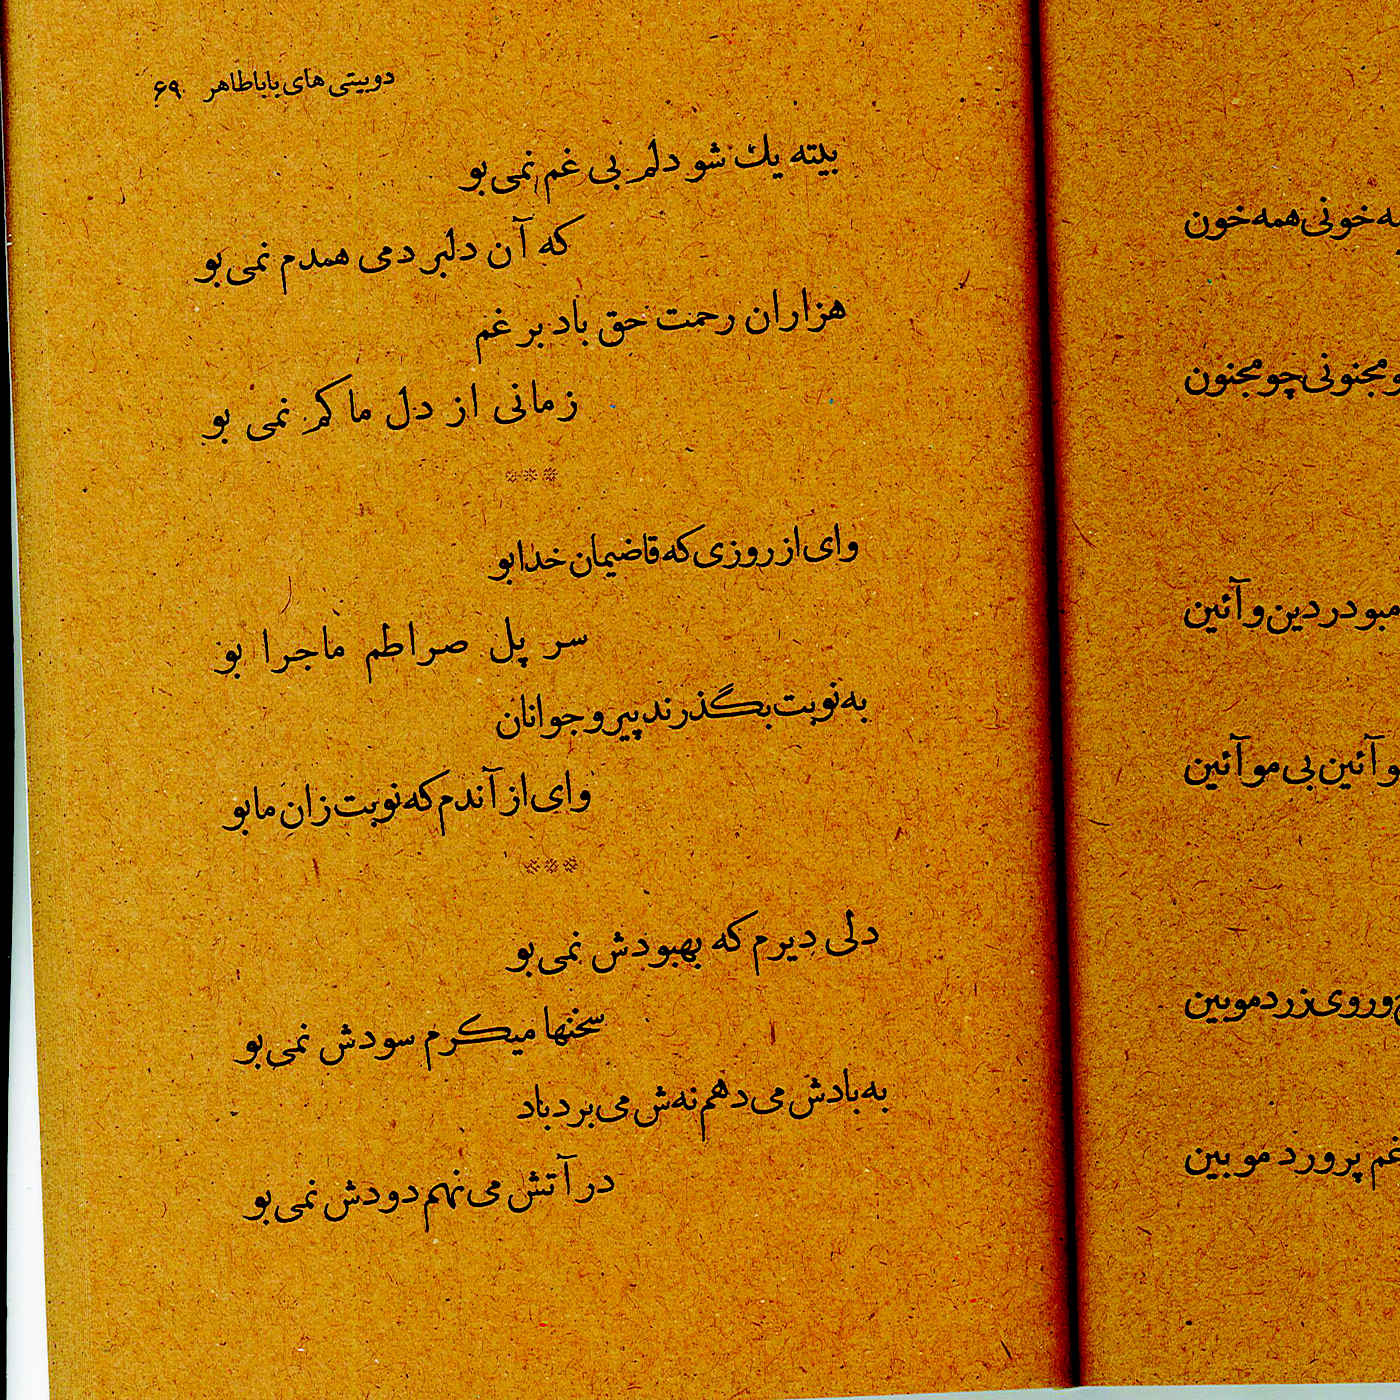 دوبیتی های باباطاهر ۶۹
بیته یك شو دلم بی غم نمی بو
که آن دلبر دمی همدم نمی بو
هزاران رحمت حق باد بر غم
زمانی از دل ما کم نمی بو
وای از روزی که قاضیمان خدا بو
سر پل صراطم ماجرا بو
به نوبت بگذرند پیر و جوانان
وای از آندم که نوبت زان ما بو
دلی دیرم که بهبودش نمی بو
سخنها میکرم سودش نمی بو
به بادش می دهم نه ش می برد باد
در آتش می نهم دودش نمی بو
خونی همه خون
مجنونی چو مجنون
مبو در دین و آئین
و آئین بی مو آئین
و روی زرد مو بین
غم پرورد مو بین